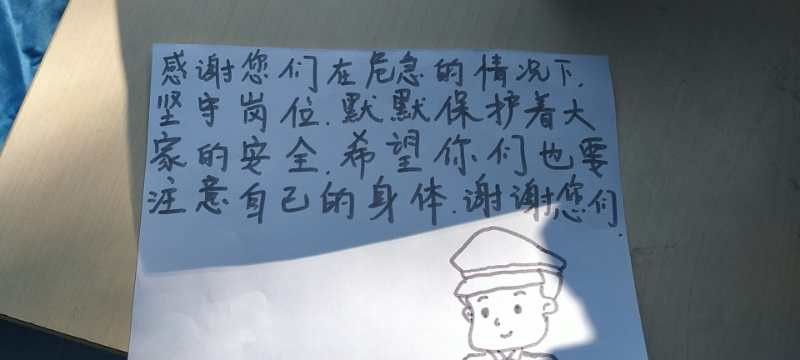 感谢您们在危急的情况下,
坚守岗位.默默保护着大
家的安全.希望你们也要
注意自己的身体.谢谢您们.